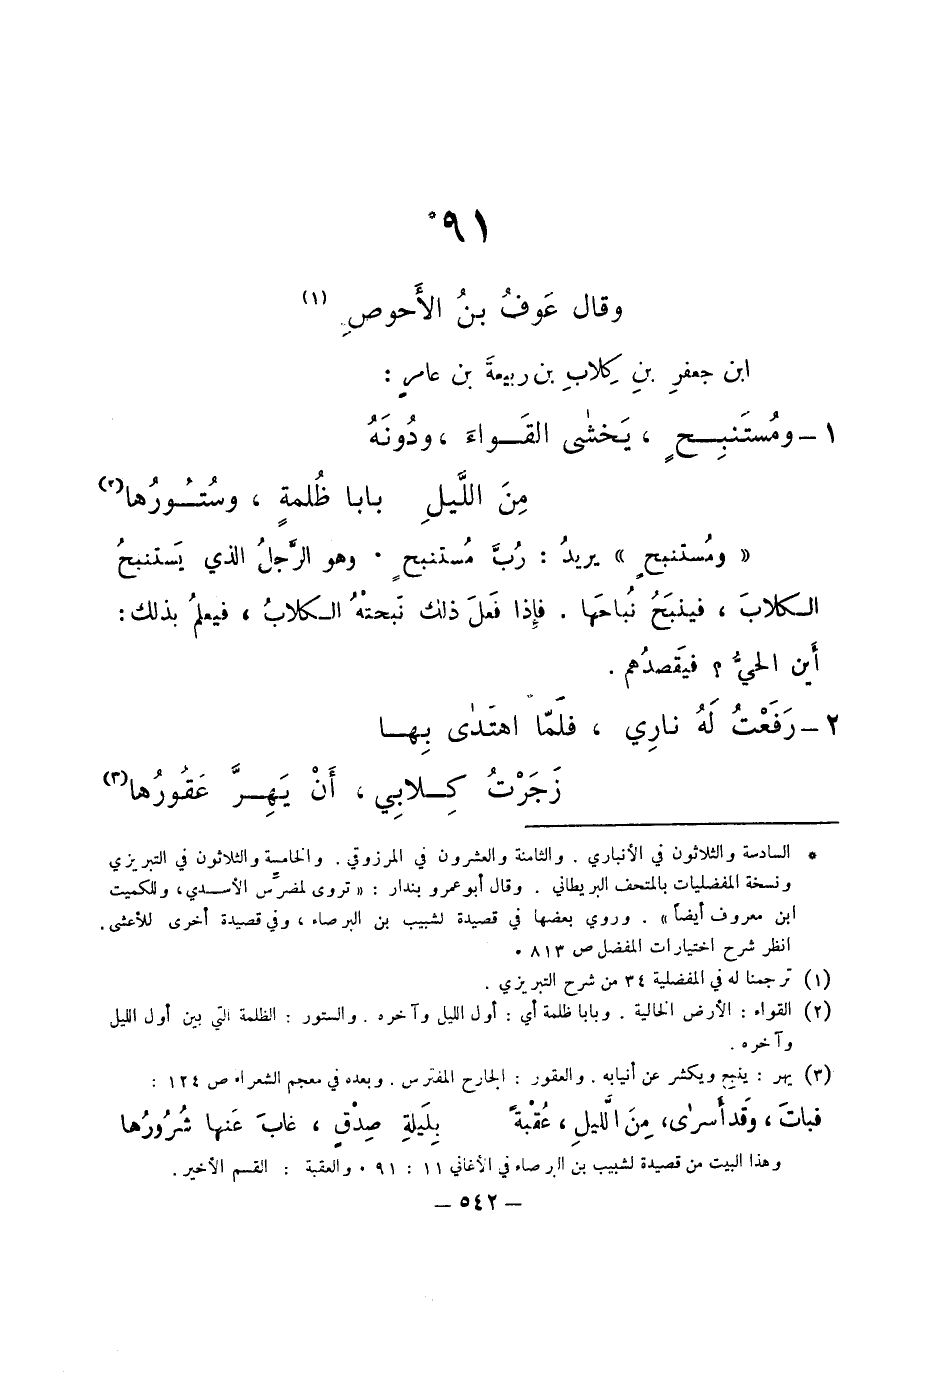 ٩١*
وقال عَوفُ بنُ الأَحوصِ (١)
ابن جعفرِ بنِ كِلابِ بن ربيعةَ بن عامرٍ :
١ – ومُستَنبِحٍ ، يَخشٰى القَواءَ ، ودُونَهُ
مِنَ اللَّيلِ بابا ظُلمةٍ ، وسُتُورُها(٢)
« ومُستنبحٍ » يريدُ : رُبَّ مُستنبحٍ . وهو الرَّجلُ الذي يَستنبحُ
الكلابَ ، فينبَحُ نُباحَها . فإِذا فَعلَ ذلك نَبحتْهُ الكلابُ ، فيعلمُ بذلك :
أَين الحيُّ ؟ فيَقصدُهم .
٢ – رَفَعْتُ لَهُ نارِي ، فلَمّا اهتَدٰى بِها
زَجَرْتُ كِلابِي ، أَنْ يَهِرَّ عَقُورُها(٣)
* السادسة والثلاثون في الأنباري . والثامنة والعشرون في المرزوقي . والخامسة والثلاثون في التبريزي
ونسخة المفضليات بالمتحف البريطاني . وقال أبو عمرو بندار : « تروى لمضرِّس الأسدي ، وللكميت
ابن معروف أيضاً » . وروي بعضها في قصيدة لشبيب بن البرصاء ، وفي قصيدة أخرى للأعشى .
انظر شرح اختيارات المفضل ص ٨١٣ .
(١) ترجمنا له في المفضلية ٣٤ من شرح التبريزي .
(٢) القواء : الأرض الخالية . وبابا ظلمة أي : أول الليل وآخره . والستور : الظلمة التي بين أول الليل
وآخره .
(٣) يهر : ينبح ويكشر عن أنيابه . والعقور : الجارح المفترس . وبعده في معجم الشعراء ص ١٢٤ :
فباتَ ، وقَد أَسرٰى ، مِنَ اللَّيلِ ، عُقبةً بِلَيلةِ صِدْقٍ ، غابَ عَنها شُرُورُها
وهذا البيت من قصيدة لشبيب بن البرصاء في الأغاني ١١ : ٩١ . والعقبة : القسم الأخير .
– ٥٤٢ –